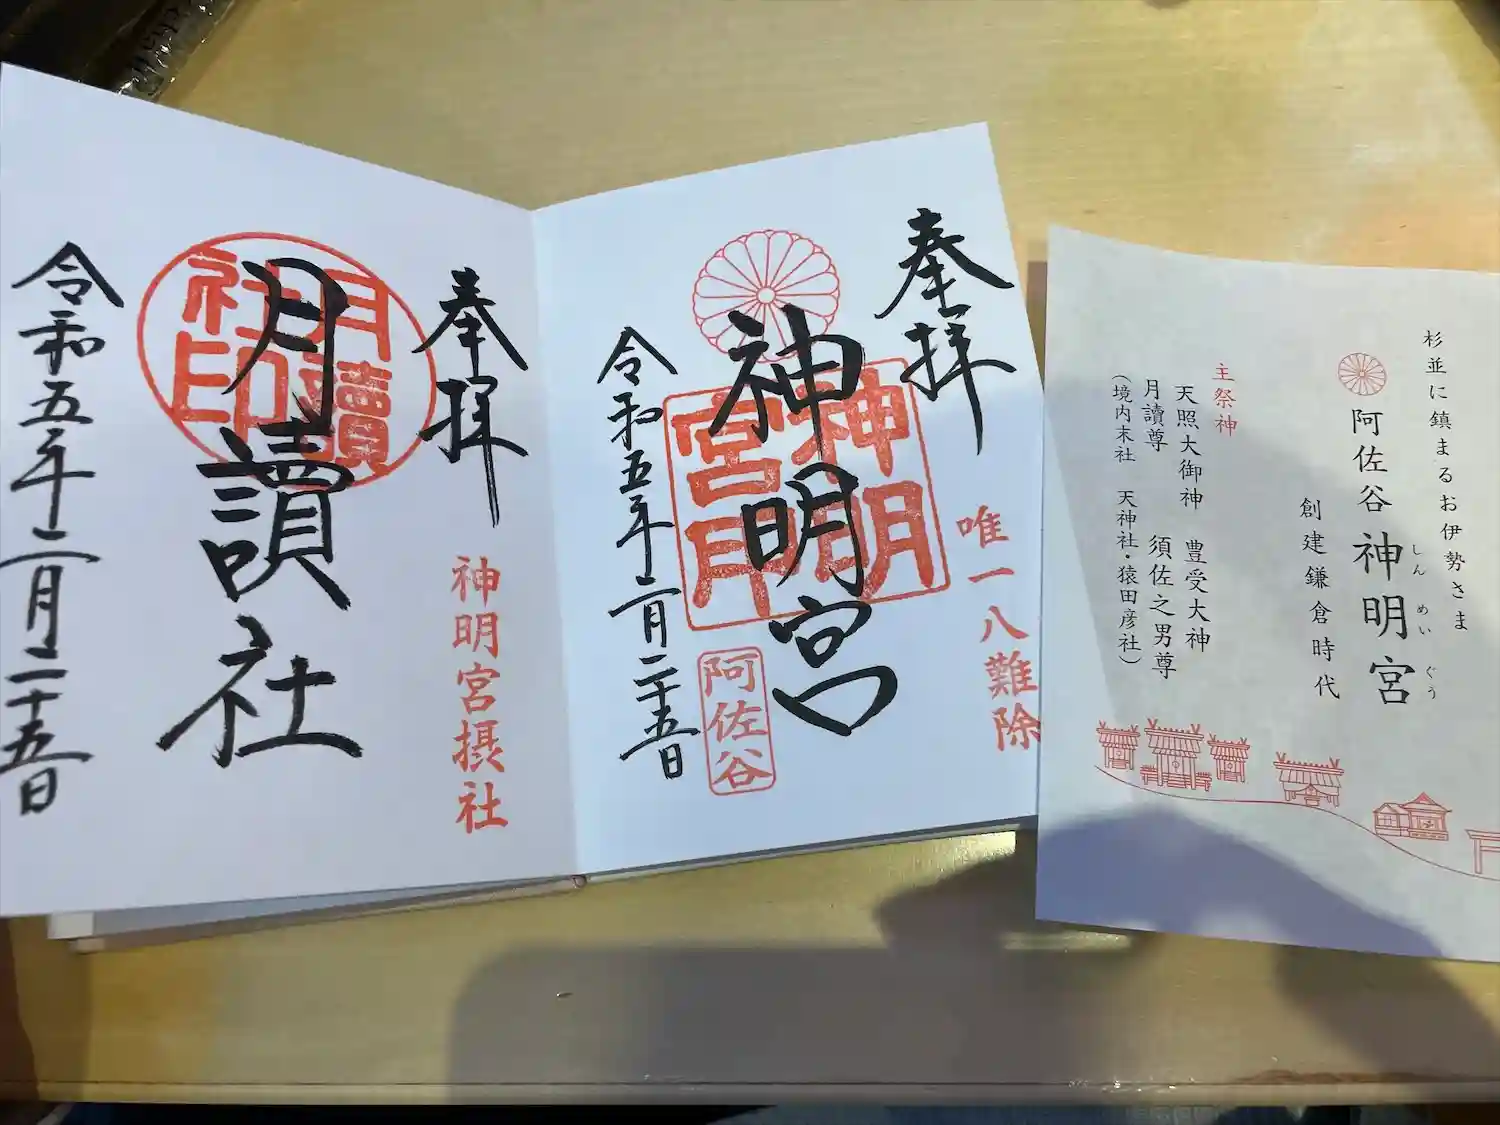 杉並に鎮まるお伊勢さま
阿佐谷神明宮
しんめいぐう
創建鎌倉時代
主祭神
天照大御神 豊受大神
月讀尊 須佐之男尊
(境内末社 天神社・猿田彦社)
奉拝
唯一八難除
神明宮
神明
宮印
阿佐谷
令和五年二月二十五日
奉拝
神明宮摂社
月讀社
月讀
社印
令和五年二月二十五日